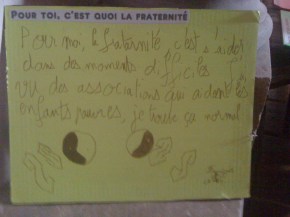 POUR TOI, C'EST QUOI LA FRATERNITÉ
Pour moi, la fraternité c'est s'aider
dans des moments difficiles
vu des associations qui
enfants pauvres, je trouve ça normal